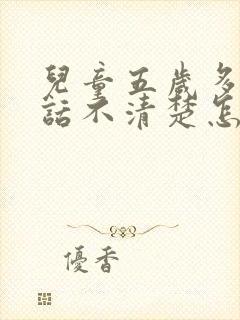 兒童五歲多
話不清楚怎
優香